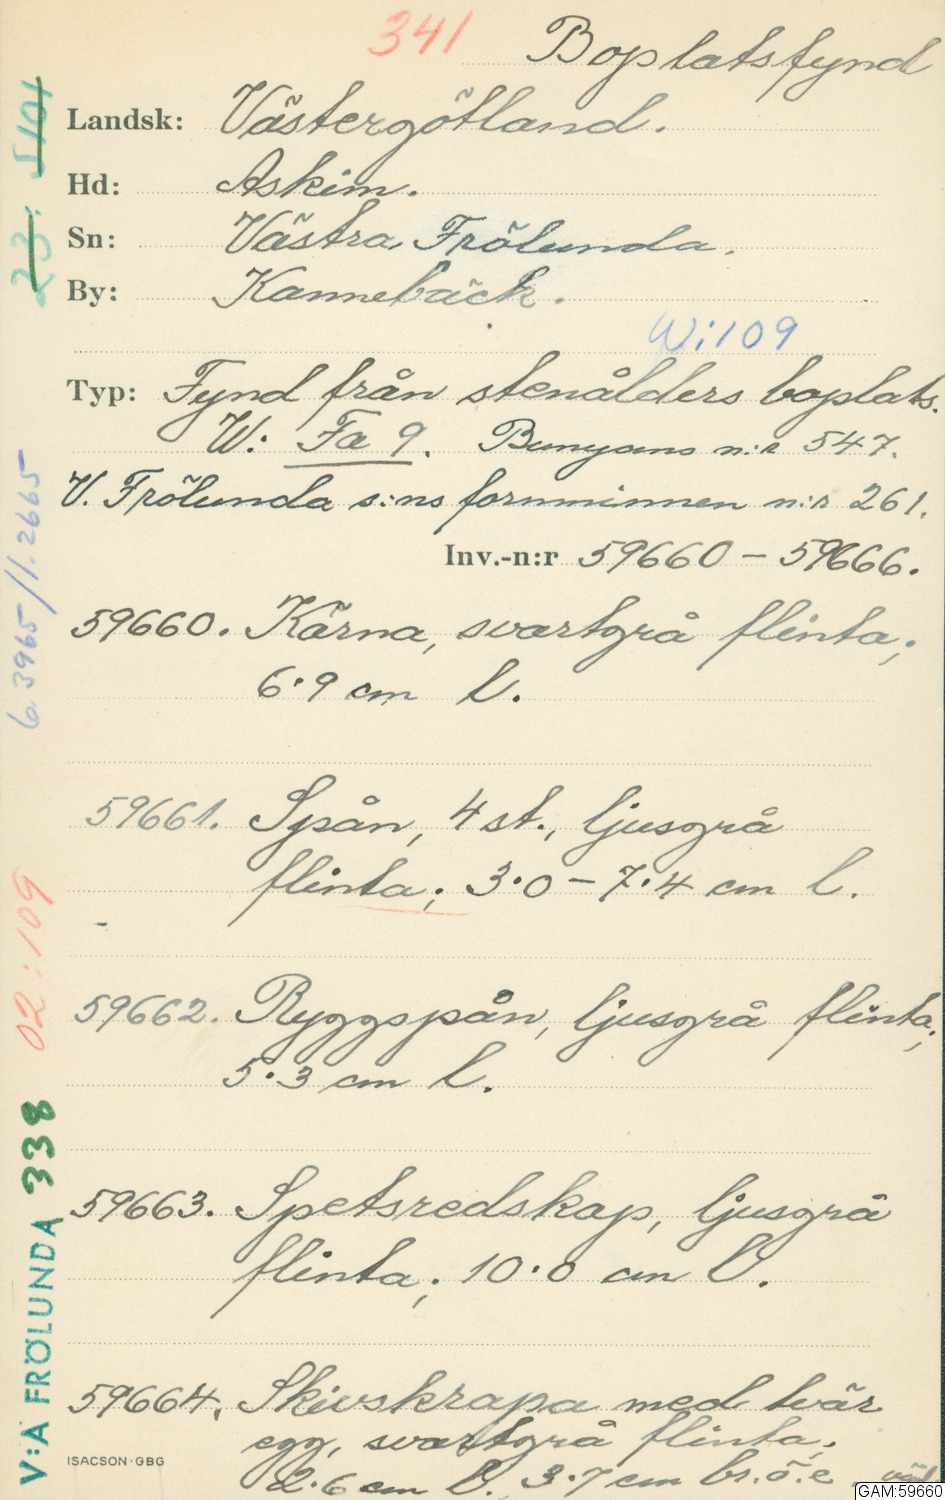 341 Boplatsfynd
Landsk: Västergötland.
Hd: Askim.
Sn: Västra Frölunda.
By: Kannebäck.
W:109
Typ: Fynd från stenålders boplats.
W: Fa 9. Bunyans n:r 547.
V. Frölunda s:ns fornminnen n:r 261.
Inv.-n:r 59660 – 59666.
59660. Kärna, svartgrå flinta;
6·9 cm l.
59661. Spån, 4 st., ljusgrå
flinta; 3·0 – 7·4 cm l.
59662. Ryggspån, ljusgrå flinta;
5·3 cm l.
59663. Spetsredskap, ljusgrå
flinta; 10·0 cm l.
59664. Skivskrapa med tvär
egg, svartgrå flinta;
2·6 cm l. 3·7 cm br. ö. e
ISACSON·GBG
GAM:59660
23: 5101
6.3965/1.2665
02:109
V:A FRÖLUNDA 338